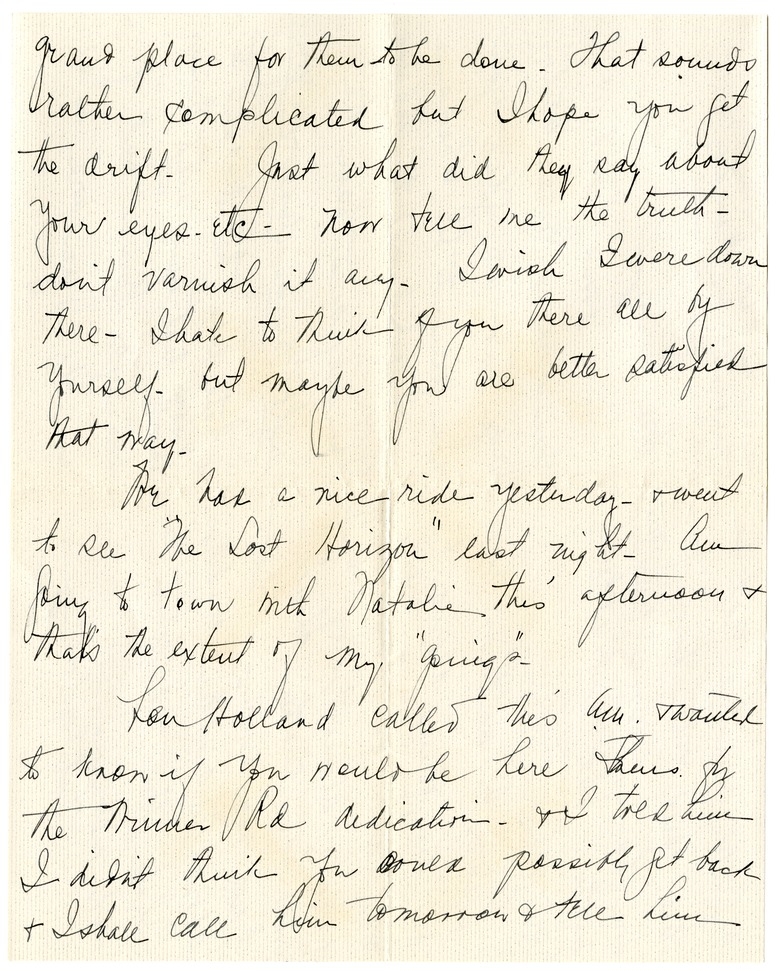 grand place for them to be done. That sounds
rather complicated but I hope you get
the drift. Just what did they say about
your eyes. etc— Now tell me the truth—
don't varnish it any— I wish I were down
there— I hate to think of you there all by
yourself. but maybe you are better satisfied
that way.
We had a nice ride yesterday— & went
to see "The Lost Horizon" last night— Am
going to town with Natalie this afternoon &
that's the extent of my "goings"—
Lou Holland called this a.m. & wanted
to know if you would be here Thurs. for
the Winner Rd dedication— & I told him
I didn't think you could possibly get back
& I shall call him tomorrow & tell him